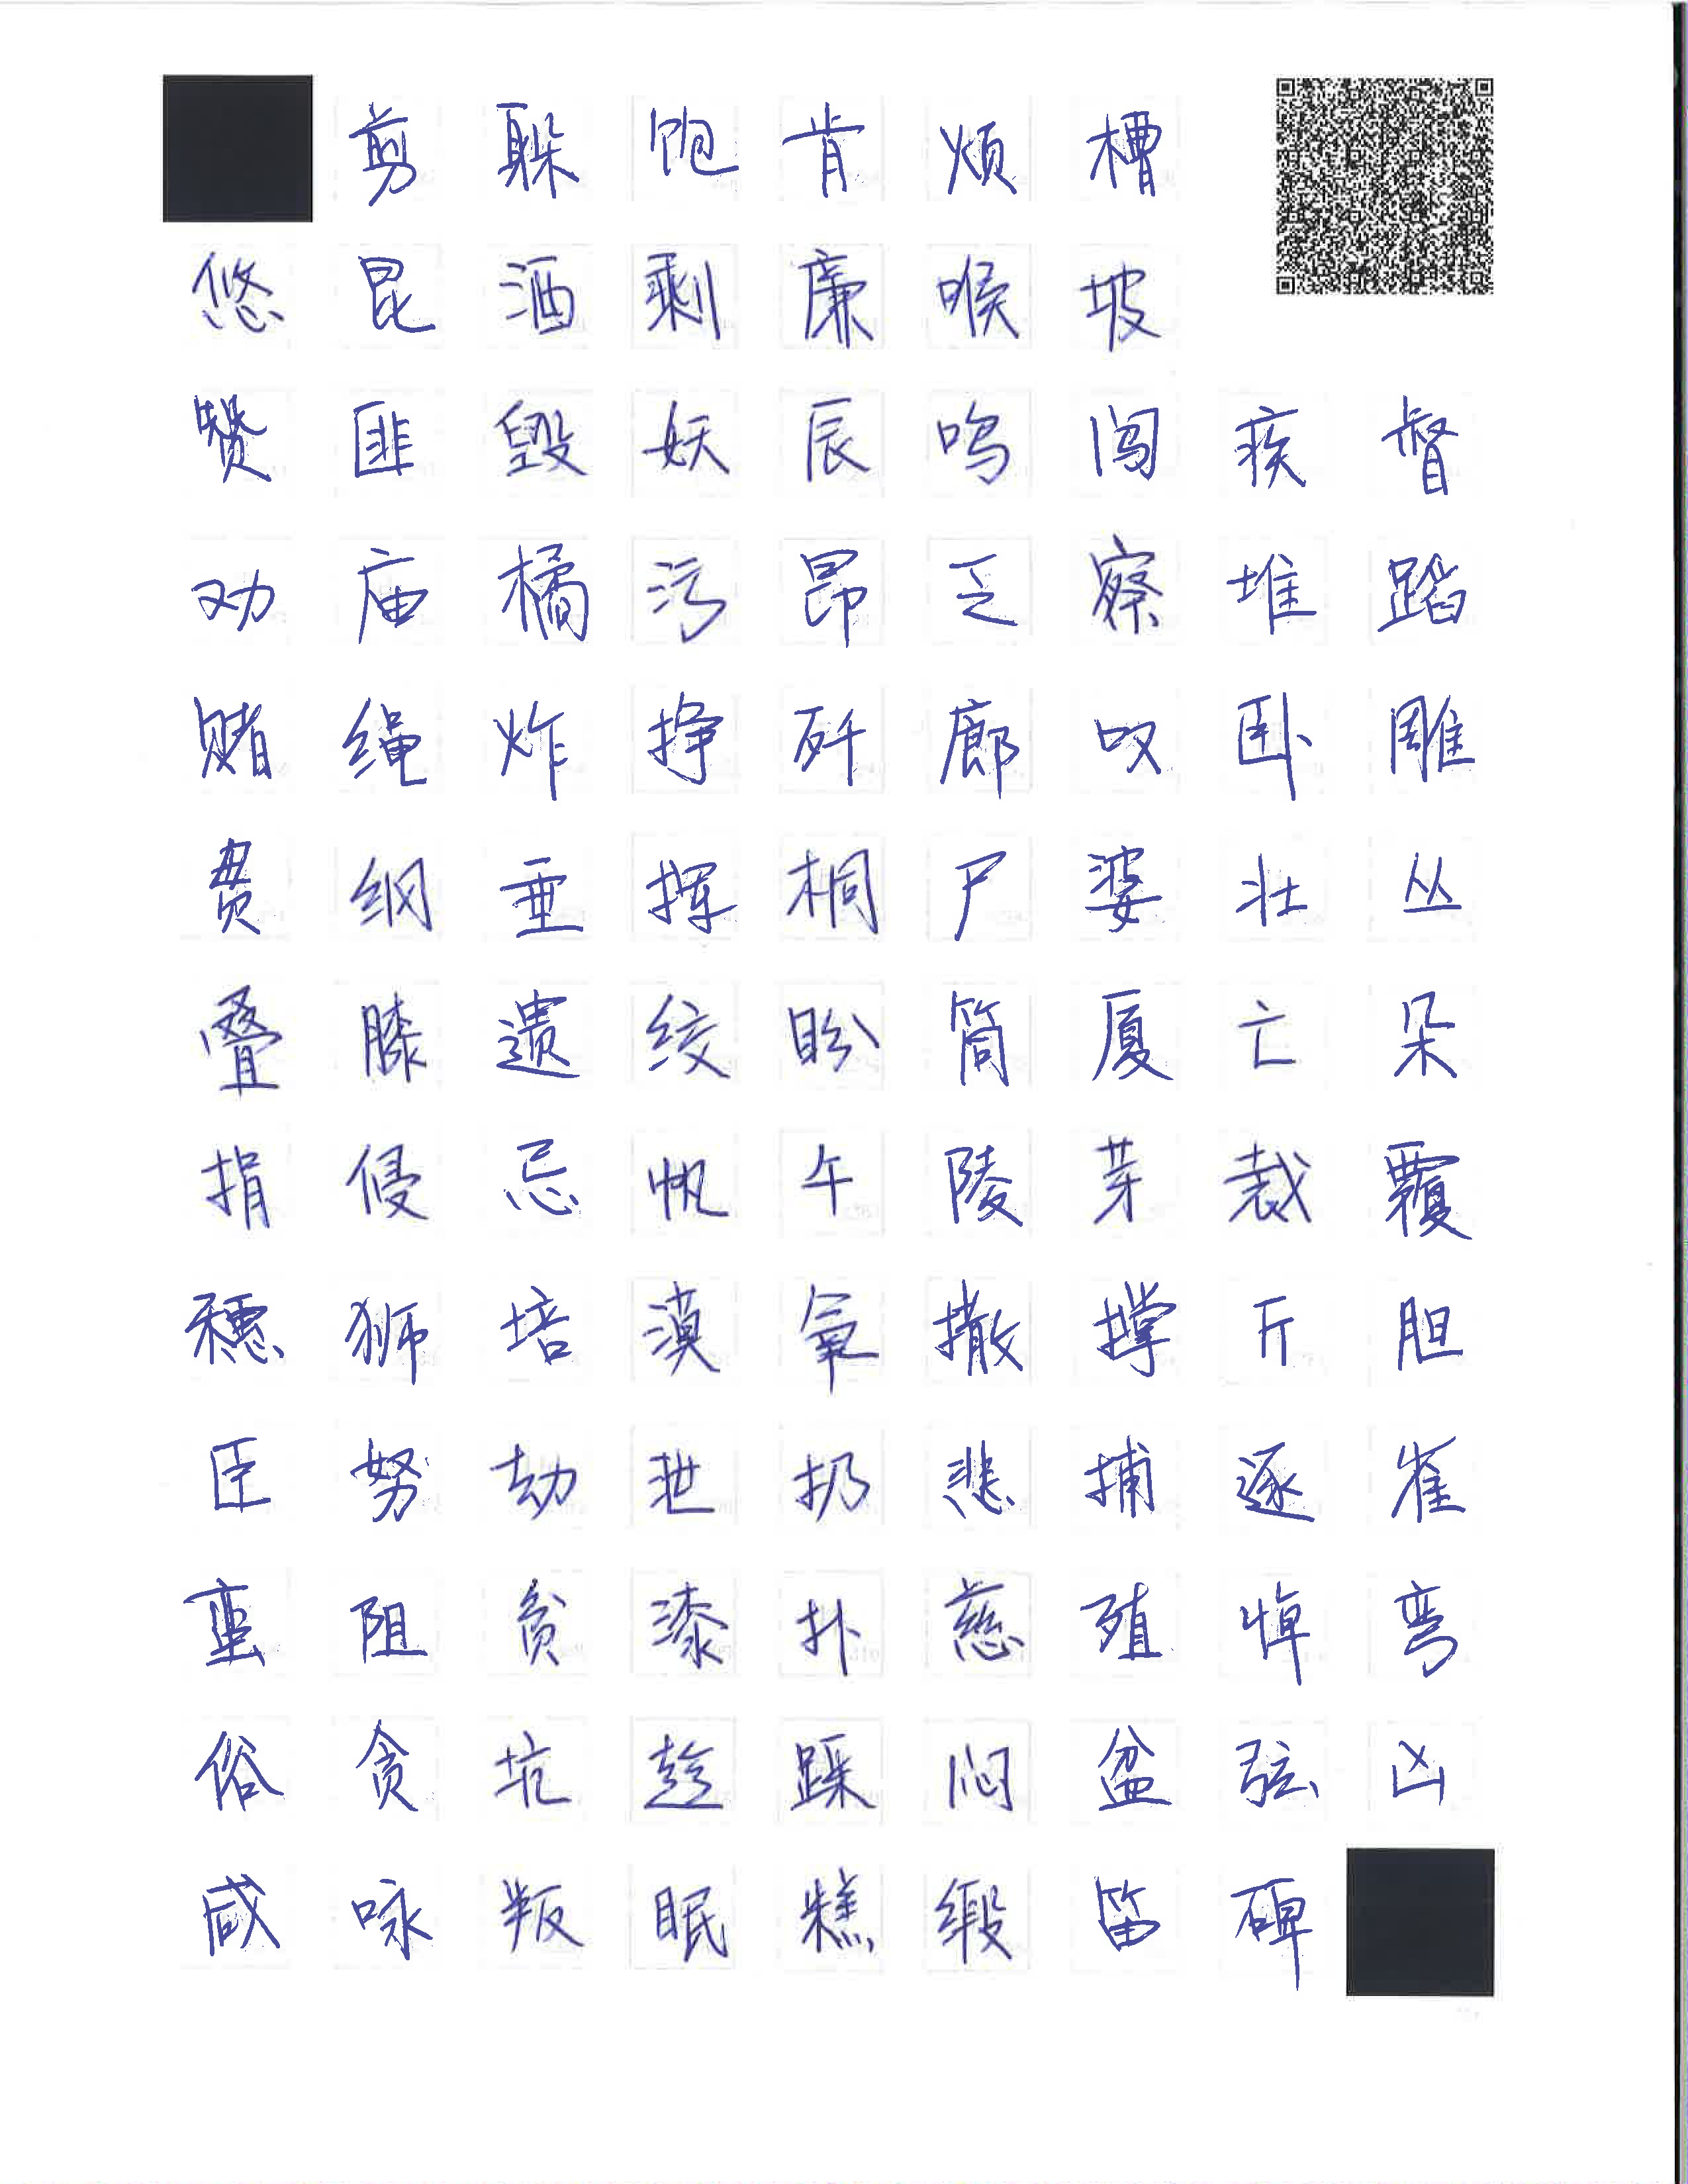 剪躲饱肯烦槽
悠昆洒剩廉喉坡
赞匪毁妖辰呜闯疾督
劝庙橘污昂乏察堆蹈
赌绳炸挣歼廊叹卧雕
贯纲垂挥桐尸婆壮丛
叠膝遗绞盼筒厦亡朵
捐侵忌帆午陵芽裁覆
穗狮培漠氧撒撑斤胆
臣努劫泄扔悲捕逐崔
蛋阻贫漆扑慈殖悼弯
俗贪坑趁踩闷盆弦凶
咸咏叛眠糕缎笛碑